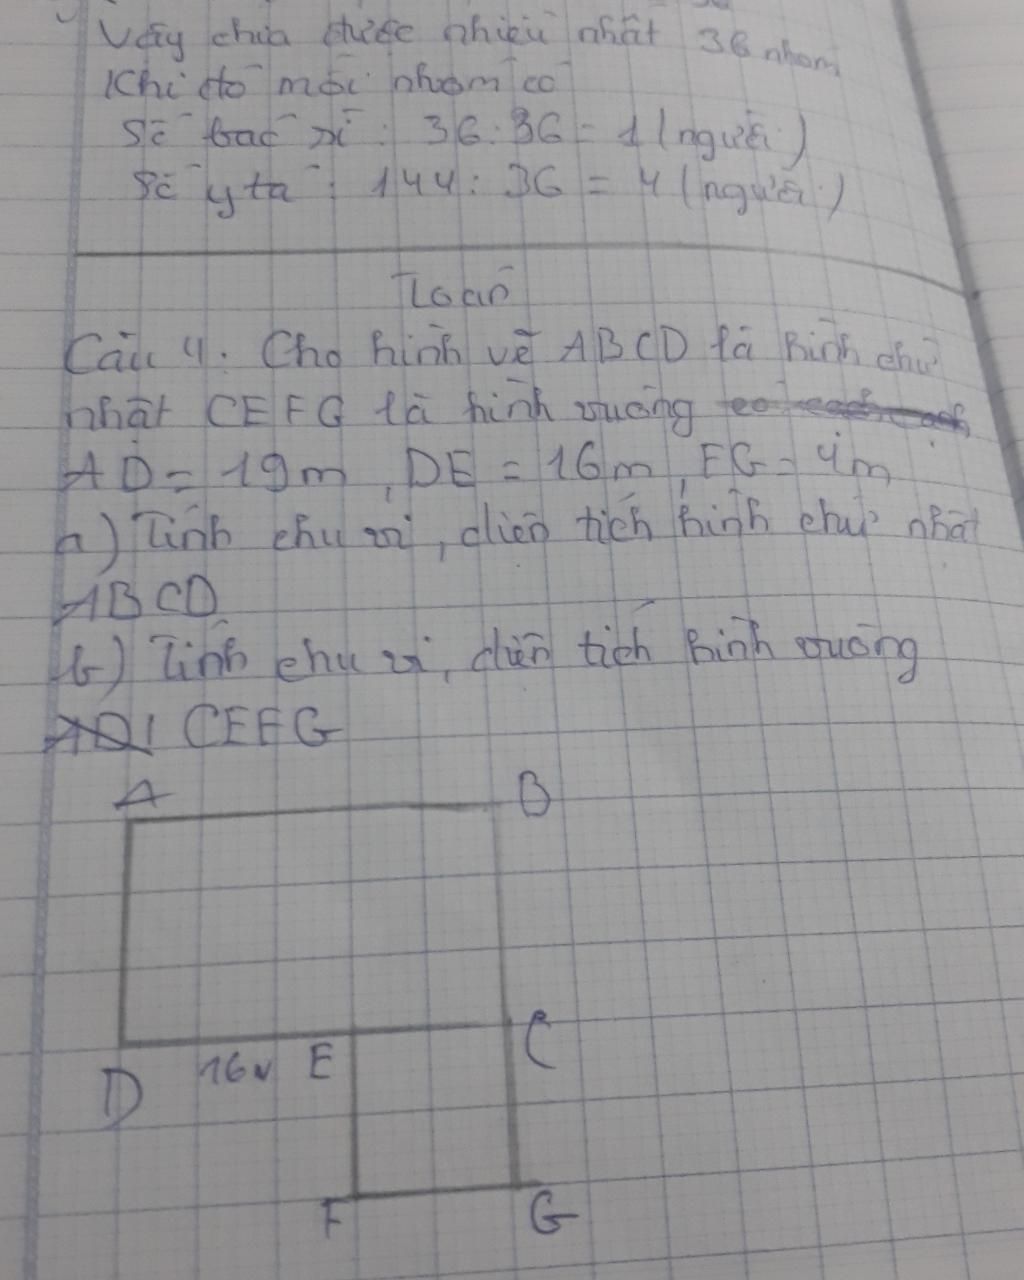 Vậy chia được nhiều nhất 36 nhóm
Khi đó mỗi nhóm có
Số bác sĩ: 36:36 = 1 (người)
Số y tá: 144: 36 = 4 (người)
Toán
Câu 4. Cho hình vẽ ABCD là hình chữ
nhật CEFG là hình vuông
AD = 19m, DE = 16m, FG = 4m
a) Tính chu vi, diện tích hình chữ nhật
ABCD
b) Tính chu vi, diện tích hình vuông
CEFG
A B
D 16m E C
F G